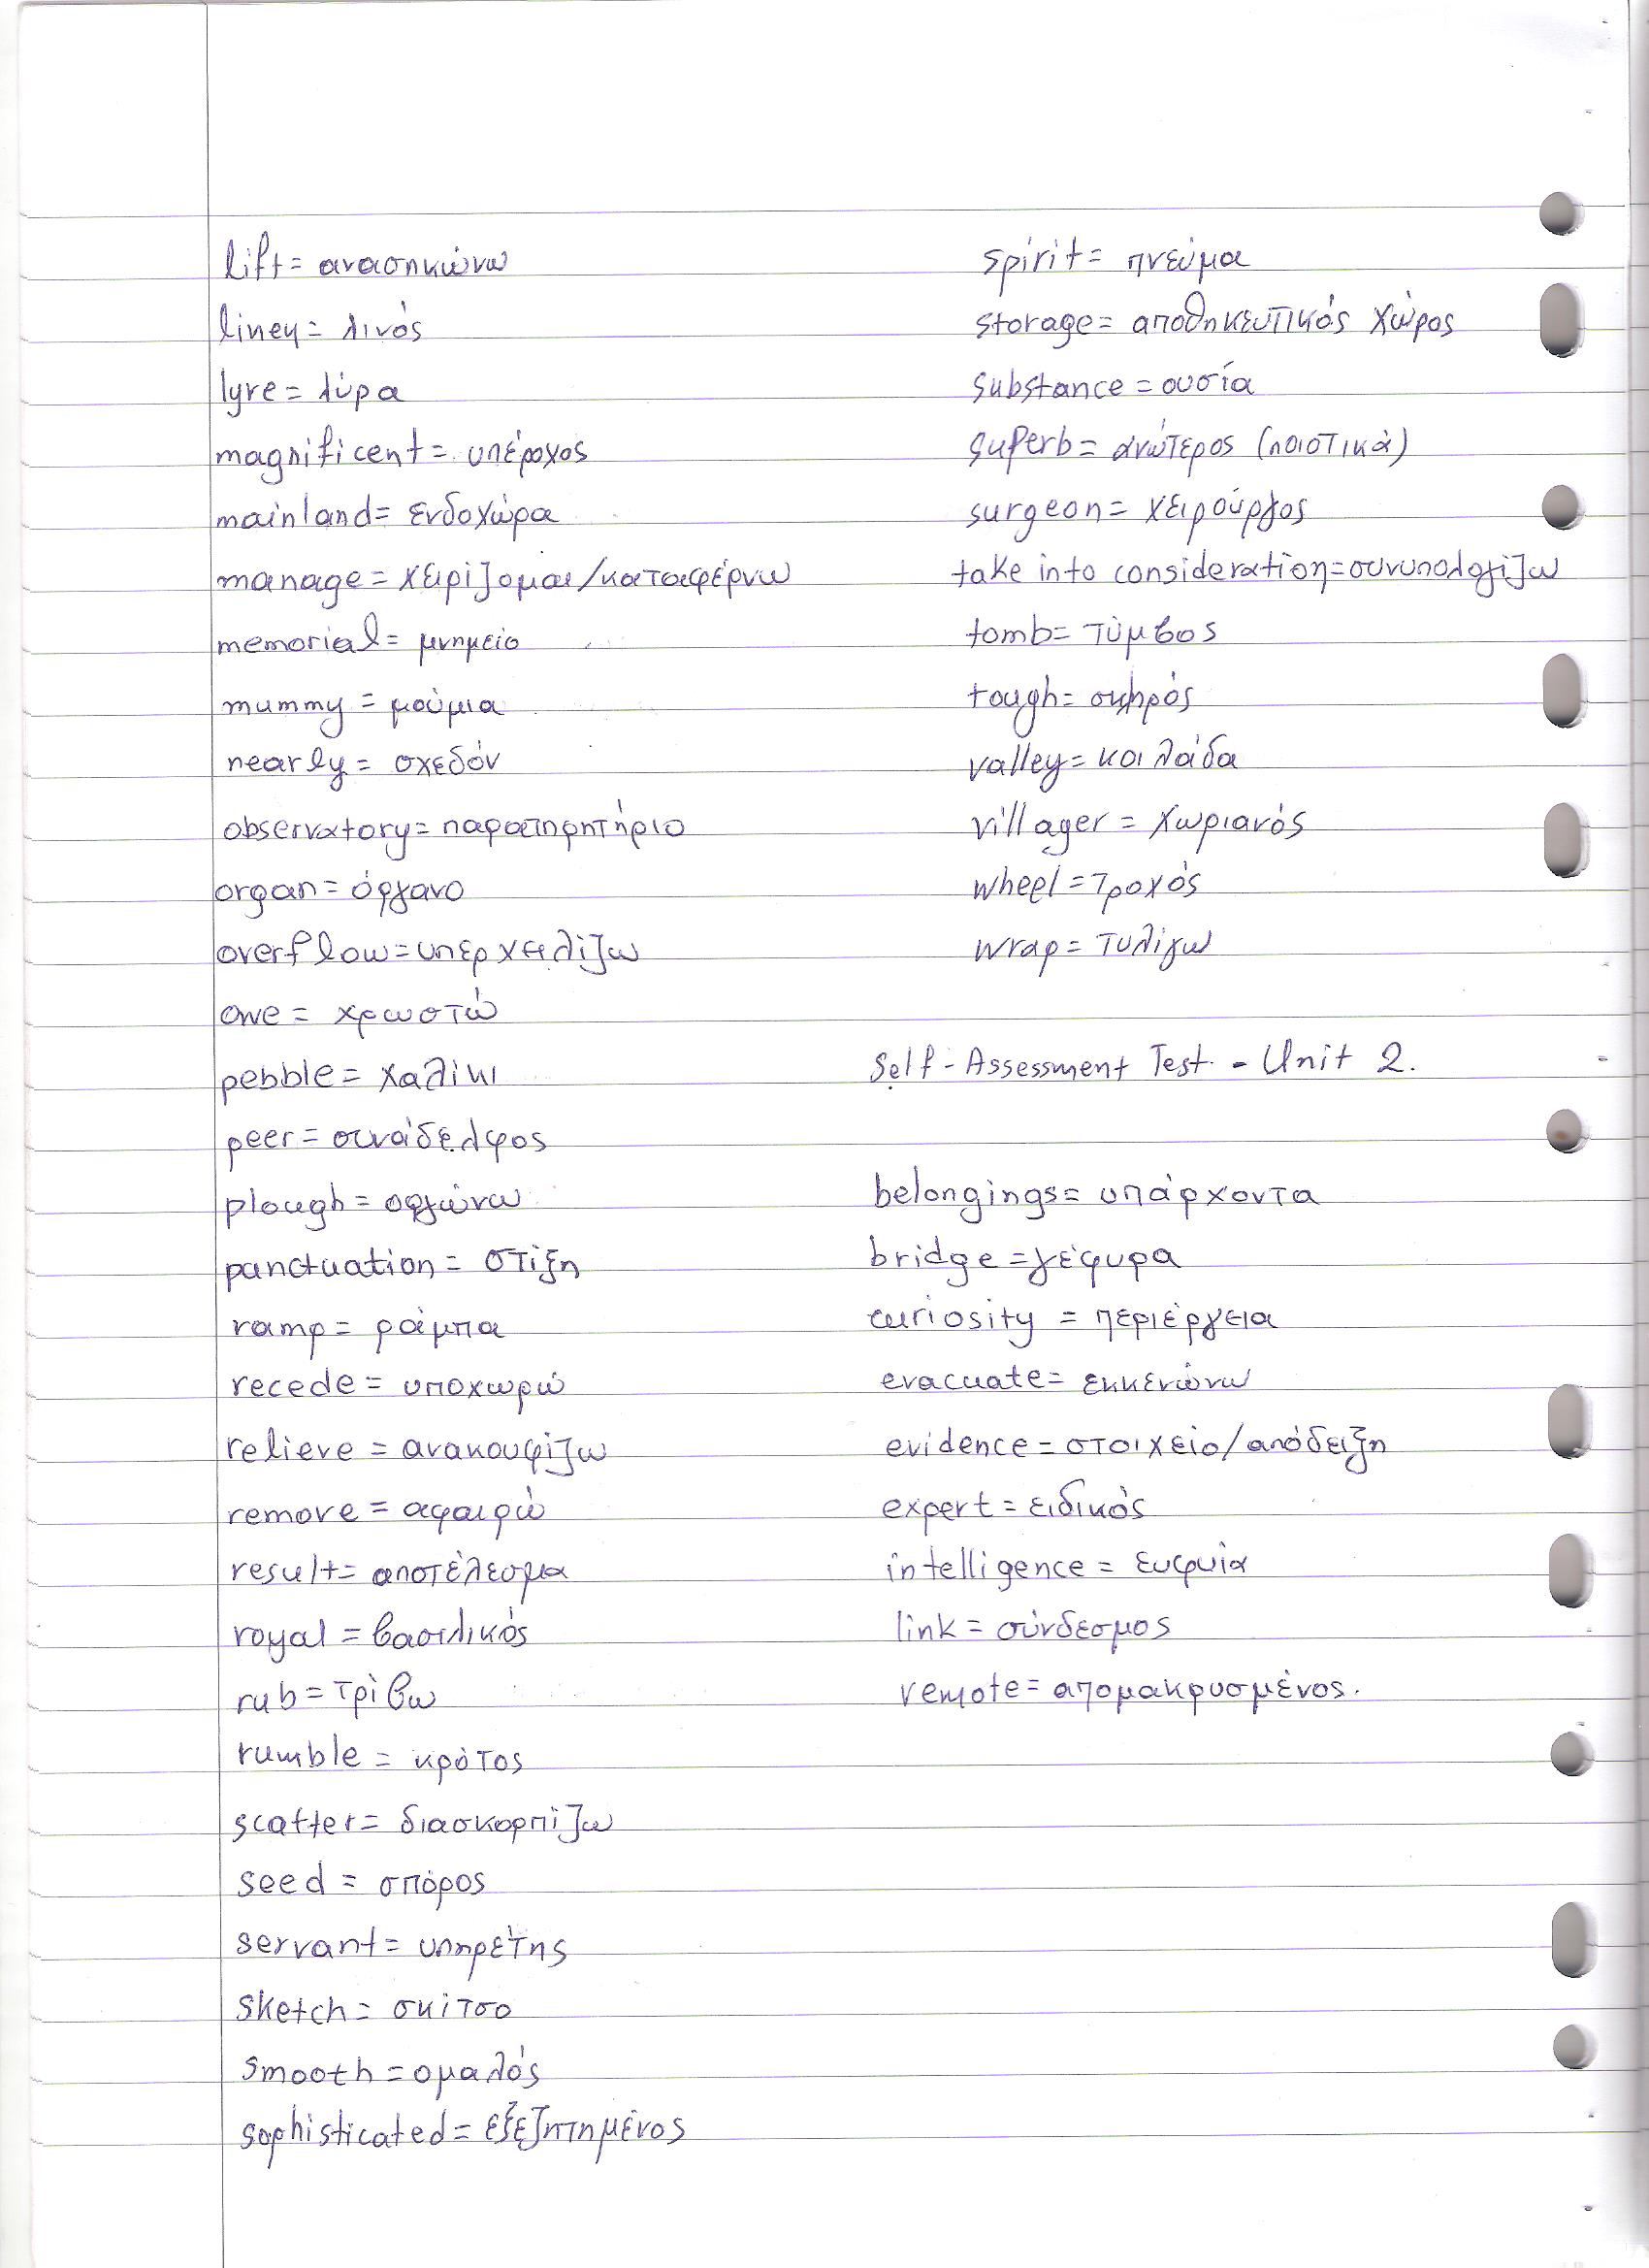 lift = ανασηκώνω
liney = λινός
lyre = λύρα
magnificent = υπέροχος
mainland = ενδοχώρα
manage = χειρίζομαι/καταφέρνω
memorial = μνημείο
mummy = μούμια
nearly = σχεδόν
observatory = παρατηρητήριο
organ = όργανο
overflow = υπερχειλίζω
owe = χρωστώ
pebble = χαλίκι
peer = συνάδελφος
plough = οργώνω
punctuation = στίξη
ramp = ράμπα
recede = υποχωρώ
relieve = ανακουφίζω
remove = αφαιρώ
result = αποτέλεσμα
royal = βασιλικός
rub = τρίβω
rumble = κρότος
scatter = διασκορπίζω
seed = σπόρος
servant = υπηρέτης
sketch = σκίτσο
smooth = ομαλός
sophisticated = εξεζητημένος
spirit = πνεύμα
storage = αποθηκευτικός χώρος
substance = ουσία
superb = ανώτερος (ποιοτικά)
surgeon = χειρούργος
take into consideration = συνυπολογίζω
tomb = τύμβος
tough = σκληρός
valley = κοιλάδα
villager = χωριανός
wheel = τροχός
wrap = τυλίγω
Self-Assessment Test - Unit 2.
belongings = υπάρχοντα
bridge = γέφυρα
curiosity = περιέργεια
evacuate = εκκενώνω
evidence = στοιχείο/απόδειξη
expert = ειδικός
intelligence = ευφυία
link = σύνδεσμος
remote = απομακρυσμένος.